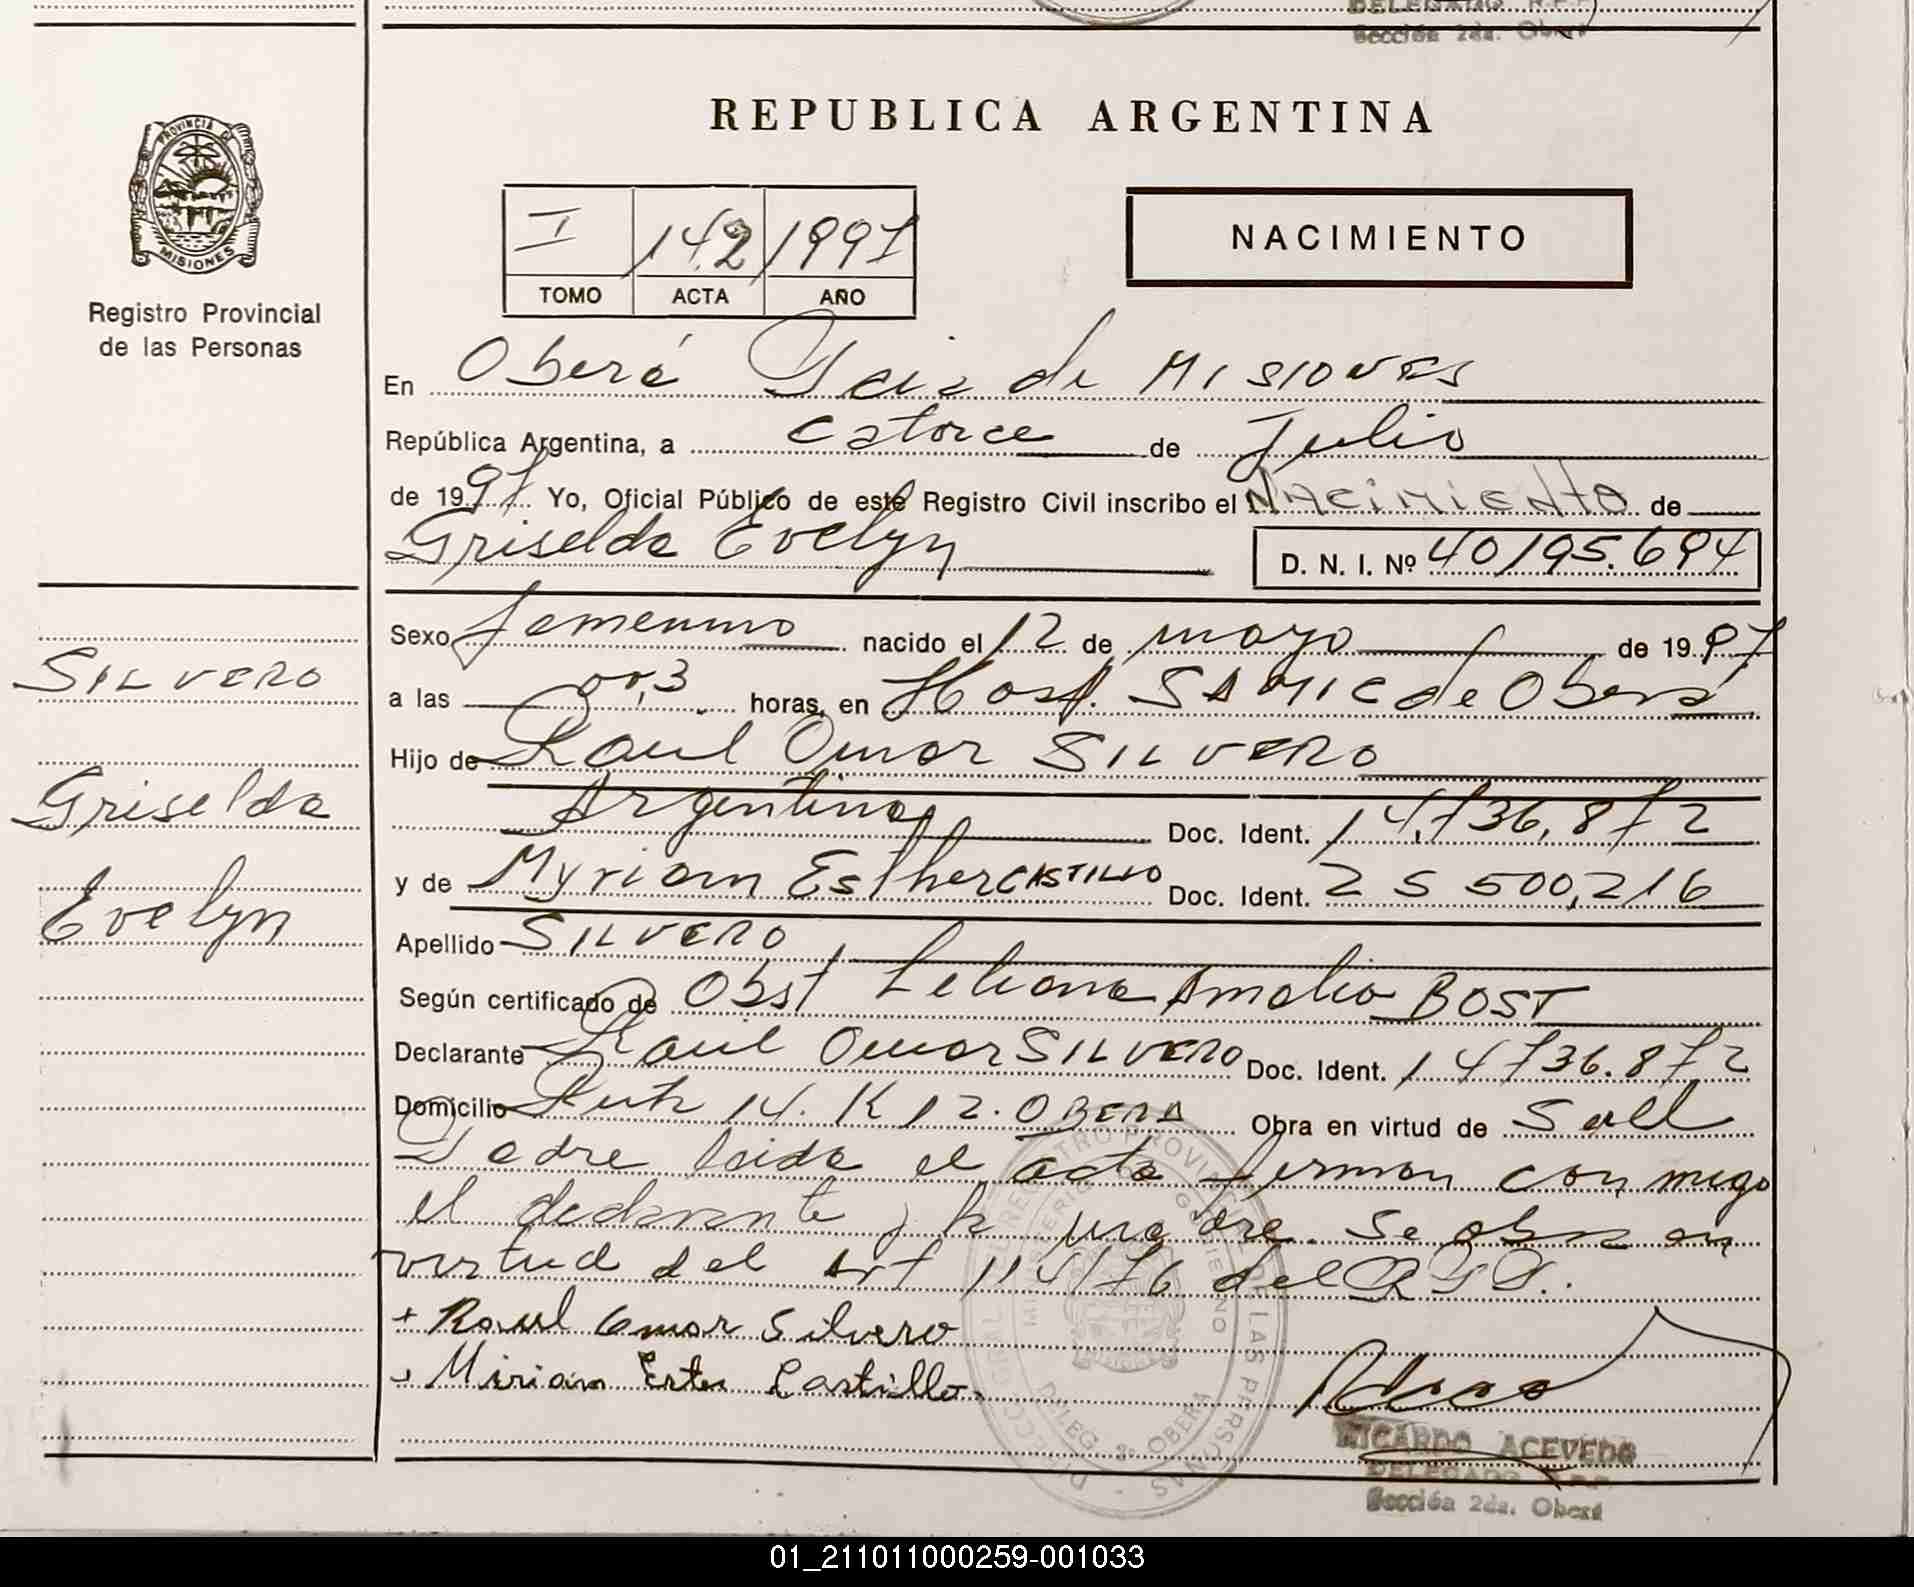 DELEGADO R.P.P.
Sección 2da. Oberá
PROVINCIA D
MISIONES
Registro Provincial
de las Personas
REPUBLICA ARGENTINA
I 142 1997
TOMO ACTA AÑO
NACIMIENTO
En Oberá Pcia de MISIONES
República Argentina, a catorce de Julio
de 1997 Yo, Oficial Público de este Registro Civil inscribo el NACIMIENTO de
Griselda Evelyn D. N. I. Nº 40195.694
Sexo femenino nacido el 12 de mayo de 1997
a las 00,3 horas, en Hosp. SAMIC de Oberá
Hijo de Raul Omar SILVERO
Argentina Doc. Ident. 14.736.872
y de Myriam Esther CASTILLO Doc. Ident. 25 500,216
Apellido SILVERO
Según certificado de Obst Leliana Amalia BOST
Declarante Raul Omar SILVERO Doc. Ident. 14736.872
Domicilio Ruta 14. K 12. OBERA Obra en virtud de ser el
Padre leida el acta firman conmigo
el declarante y la madre. Se obra en
virtud del Art 114/76 del
+ Raul Omar Silvero
Miriam Ester Castillo.
SILVERO
Griselda
Evelyn
DIRECC GRAL DEL REGISTRO PROVINCIAL DE LAS PERSONAS
MINISTERIO GOBIERNO
DELEG. 2ª OBERA
RICARDO ACEVEDO
DELEGADO R.P.P.
Sección 2da. Oberá
01_211011000259-001033